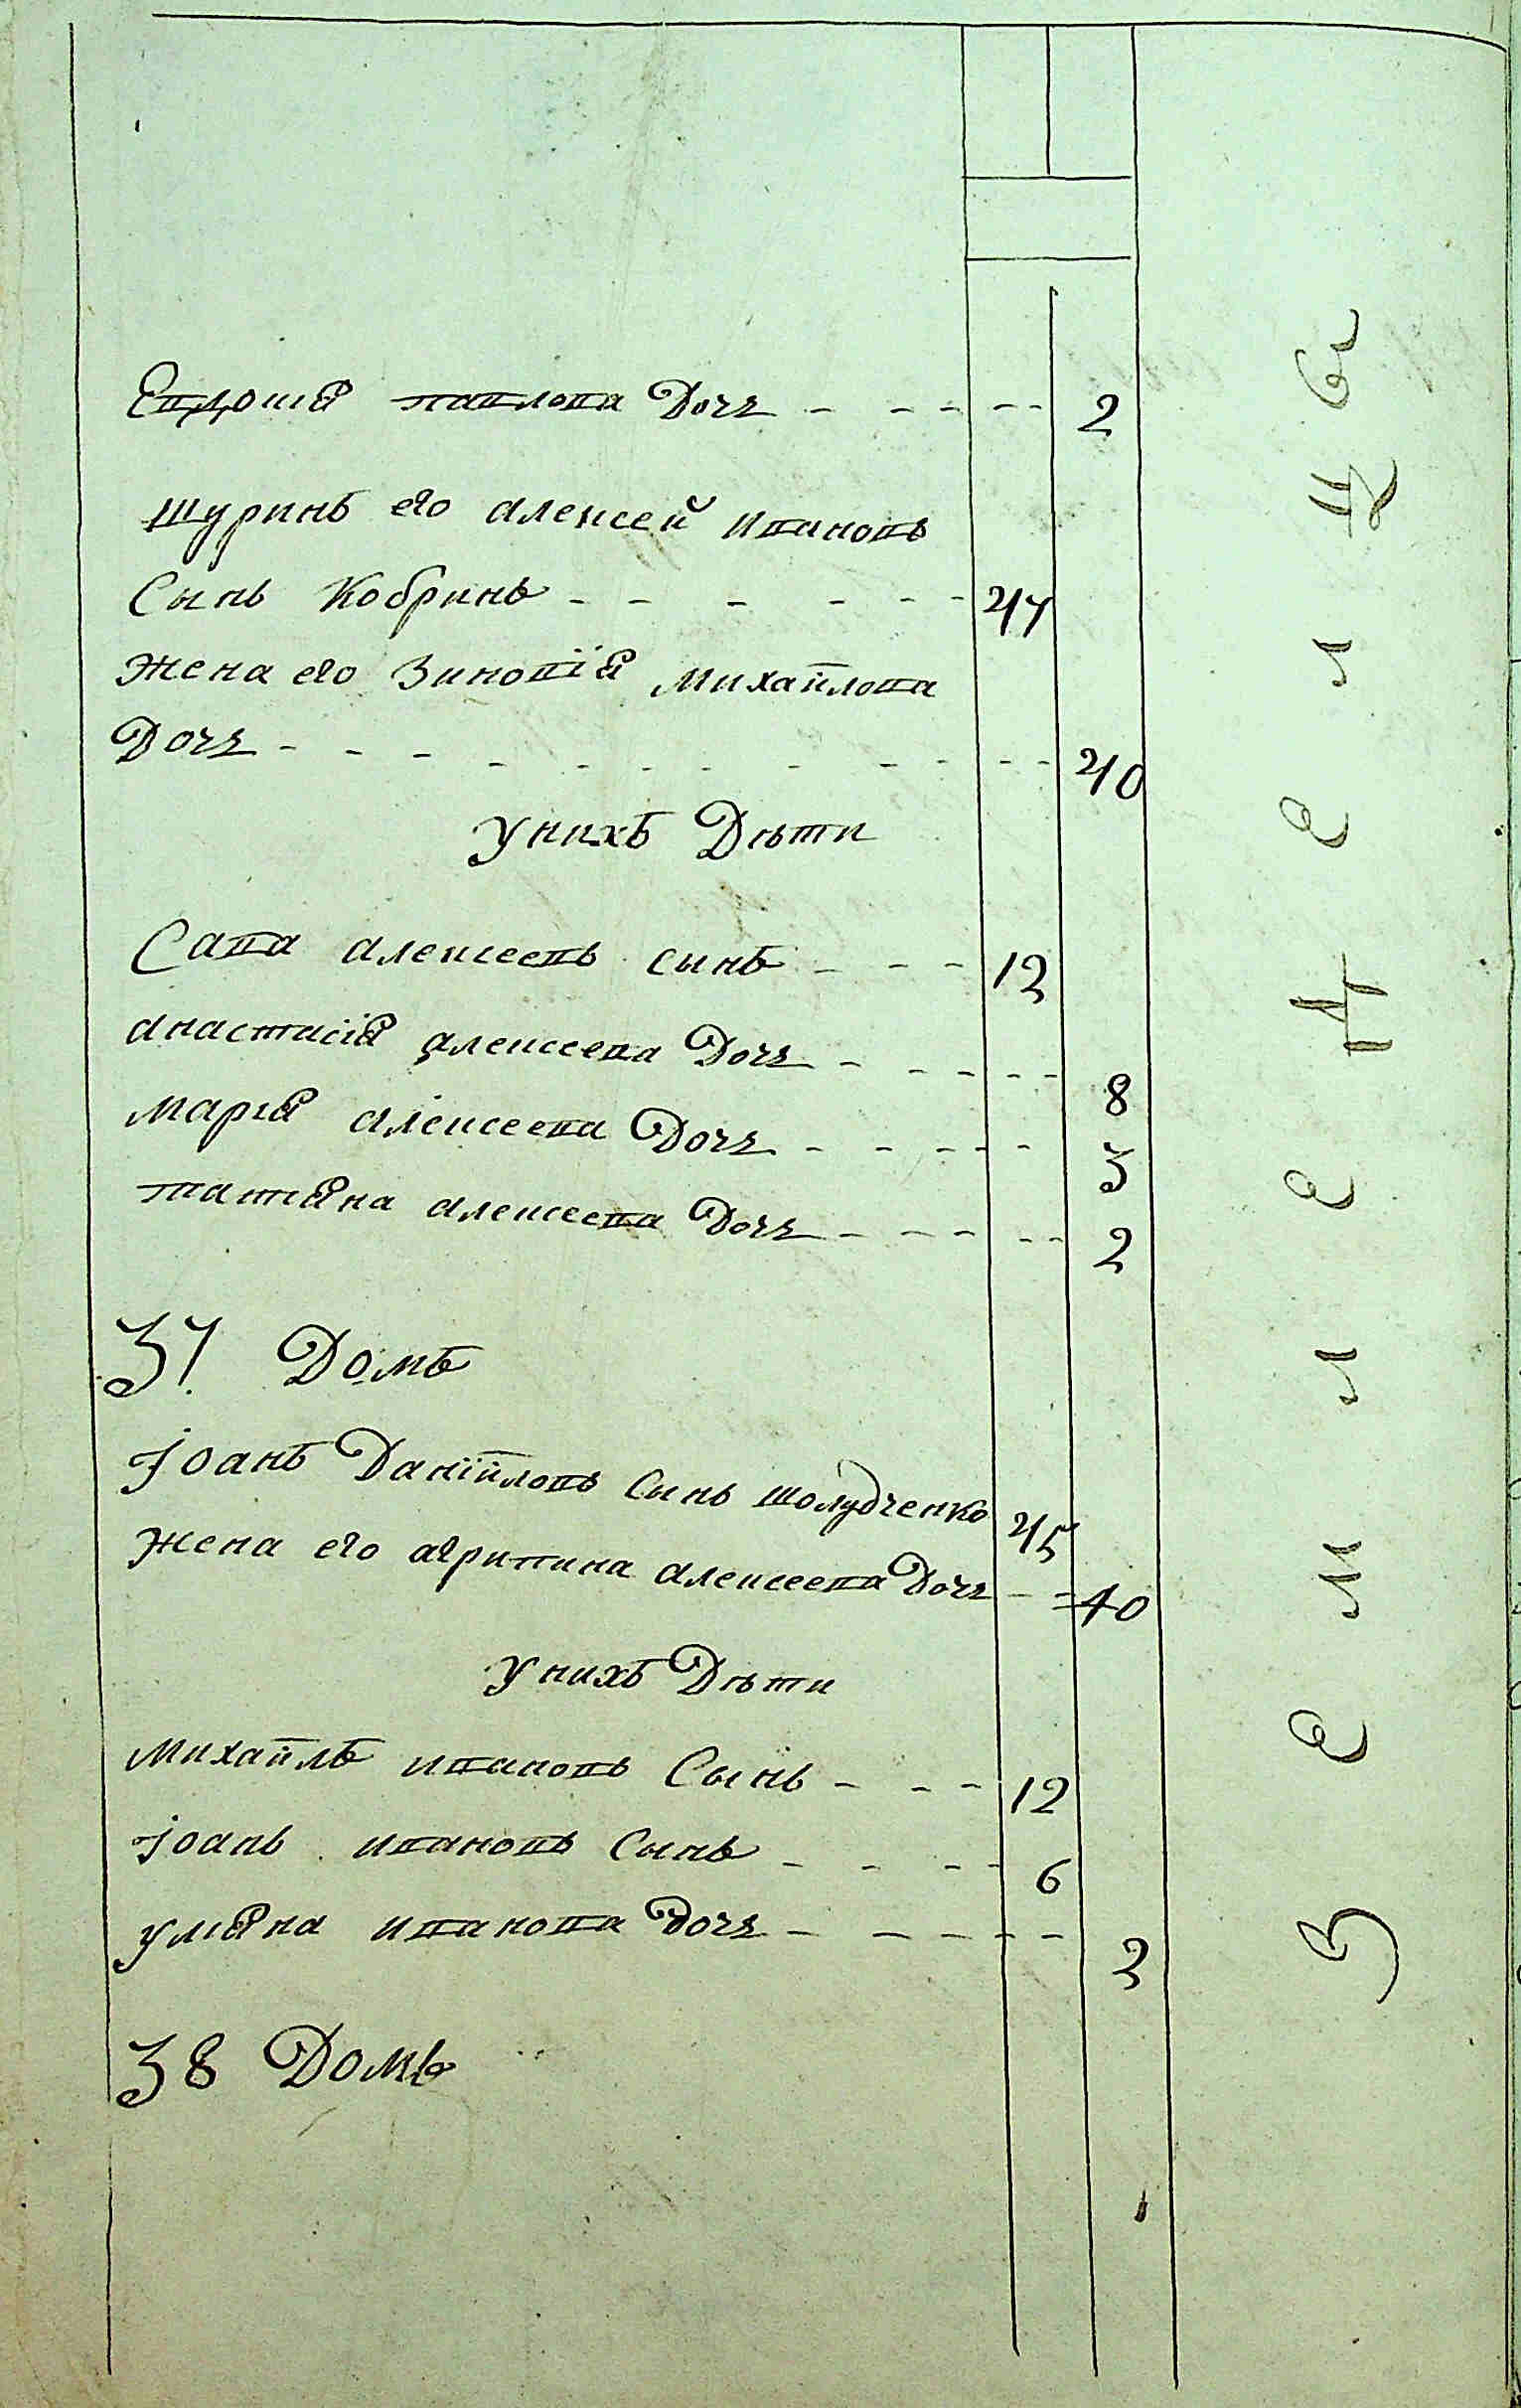 Евдокия павлова Дочь - - - - - 2
шуринъ его алексей ивановъ
Сынъ Кобринъ - - - - - - 47
жена его Зиновїя михайлова
Дочь - - - - - - - - - - - 40
У нихъ Дѣти
Сава алексеевъ сынъ - - - 12
анастасїя алексеева Дочь - - - - - 8
мария алексеева Дочь - - - - - 3
татияна алексеева Дочь - - - - - 2
37. Домъ
Іоанъ Данїйловъ Сынъ шолудченко 45
жена его агрипина алексеева Дочь - - 40
У нихъ Дѣти
михайлъ ивановъ Сынъ - - - 12
Іоанъ ивановъ Сынъ - - - - 6
улияна иванова дочь - - - - - 2
38 Домъ
Земледелцы